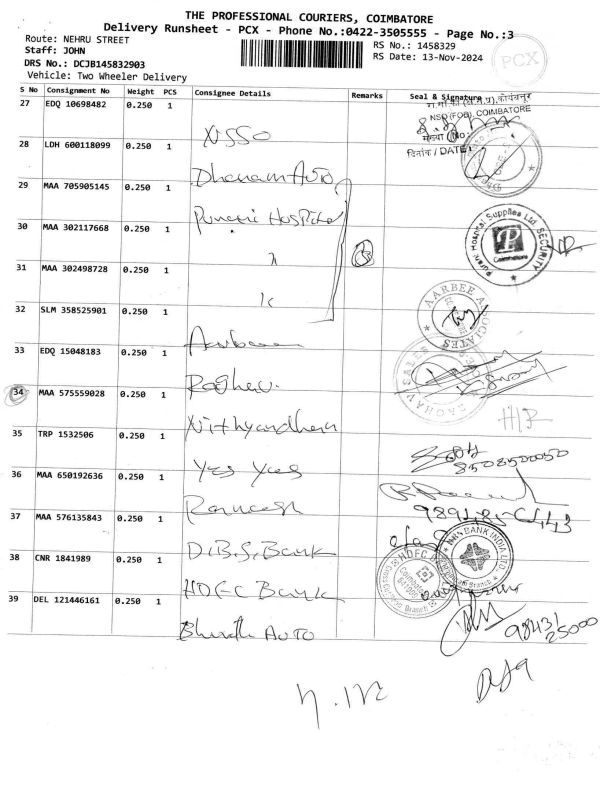 THE PROFESSIONAL COURIERS, COIMBATORE
Delivery Runsheet - PCX - Phone No.:0422-3505555 - Page No.:3
Route: NEHRU STREET
RS No.: 1458329
Staff: JOHN
RS Date: 13-Nov-2024
PCX
DRS No.: DCJB145832903
Vehicle: Two Wheeler Delivery
S No Consignment No Weight PCS Consignee Details Remarks Seal & Signature
27 EDQ 10698482 0.250 1 NSSO
NSO (FOD), COIMBATORE
दिनांक / DATE:
28 LDH 600118099 0.250 1 Dhanam Auto
29 MAA 705905145 0.250 1 Hospital
30 MAA 302117668 0.250 1 "
Hospital Supplies Ltd. SECURITY
P
Coimbatore
31 MAA 302498728 0.250 1
32 SLM 358525901 0.250 1
AARBEE ASSOCIATES
33 EDQ 15048183 0.250 1 Raghav
RAGHAV SALES
34 MAA 575559028 0.250 1
35 TRP 1532506 0.250 1 Yes Yes
8508500050
36 MAA 650192636 0.250 1 Ramesh
37 MAA 576135843 0.250 1 D.B.S. Bank
BANK INDIA LTD.
38 CNR 1841989 0.250 1 HDFC Bank
HDFC
Coimbatore
39 DEL 121446161 0.250 1 Bharath AUTO
98431
25000